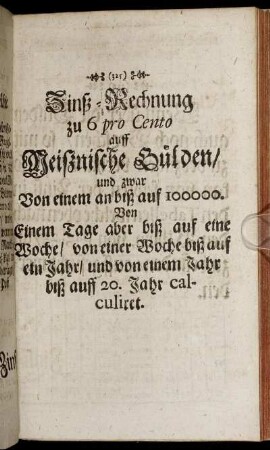 (321)
Zinß-Rechnung
zu 6 pro Cento
auff
Meißnische Gülden/
und zwar
Von einem an biß auf 100000.
Von
Einem Tage aber biß auf eine
Woche/ von einer Woche biß auf
ein Jahr/ und von einem Jahr
biß auff 20. Jahr cal-
culiret.